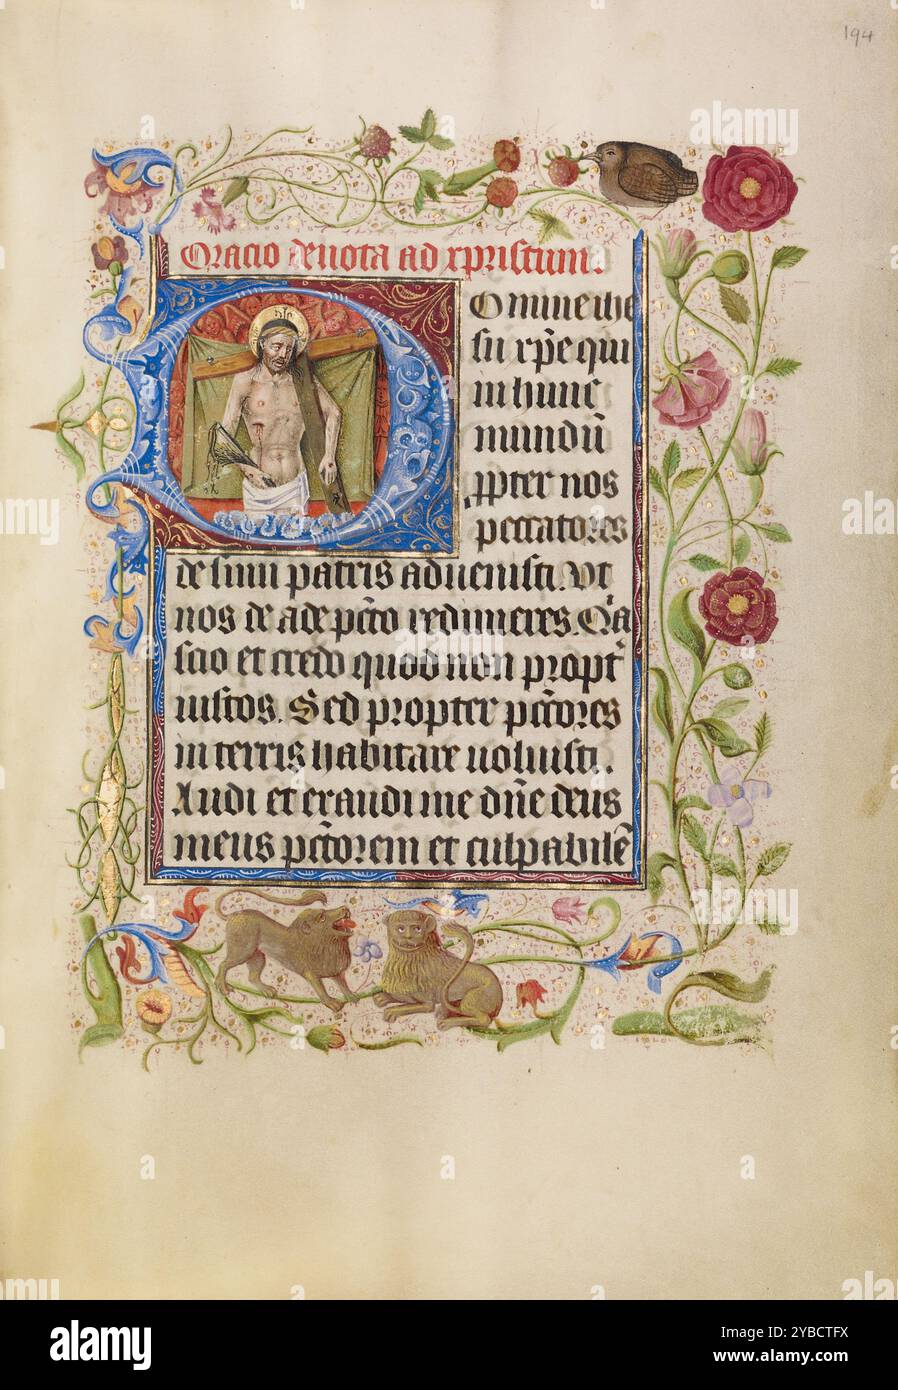 194
Oracio deuota ad xpristum.
Domine ihe
su xp̄e qui
in hunc
mundū
ꝓpter nos
peccatores
de sinu patris aduenisti. Vt
nos de ade pc̄to redimeres. Qꝛ
scio et credo quod non propt̄
iustos. Sed propter pc̄tores
in terris habitare uoluisti.
Audi et exaudi me dn̄e deus
meus pc̄torem et culpabilē
alamy
Image ID: 2YBCTFX
www.alamy.com